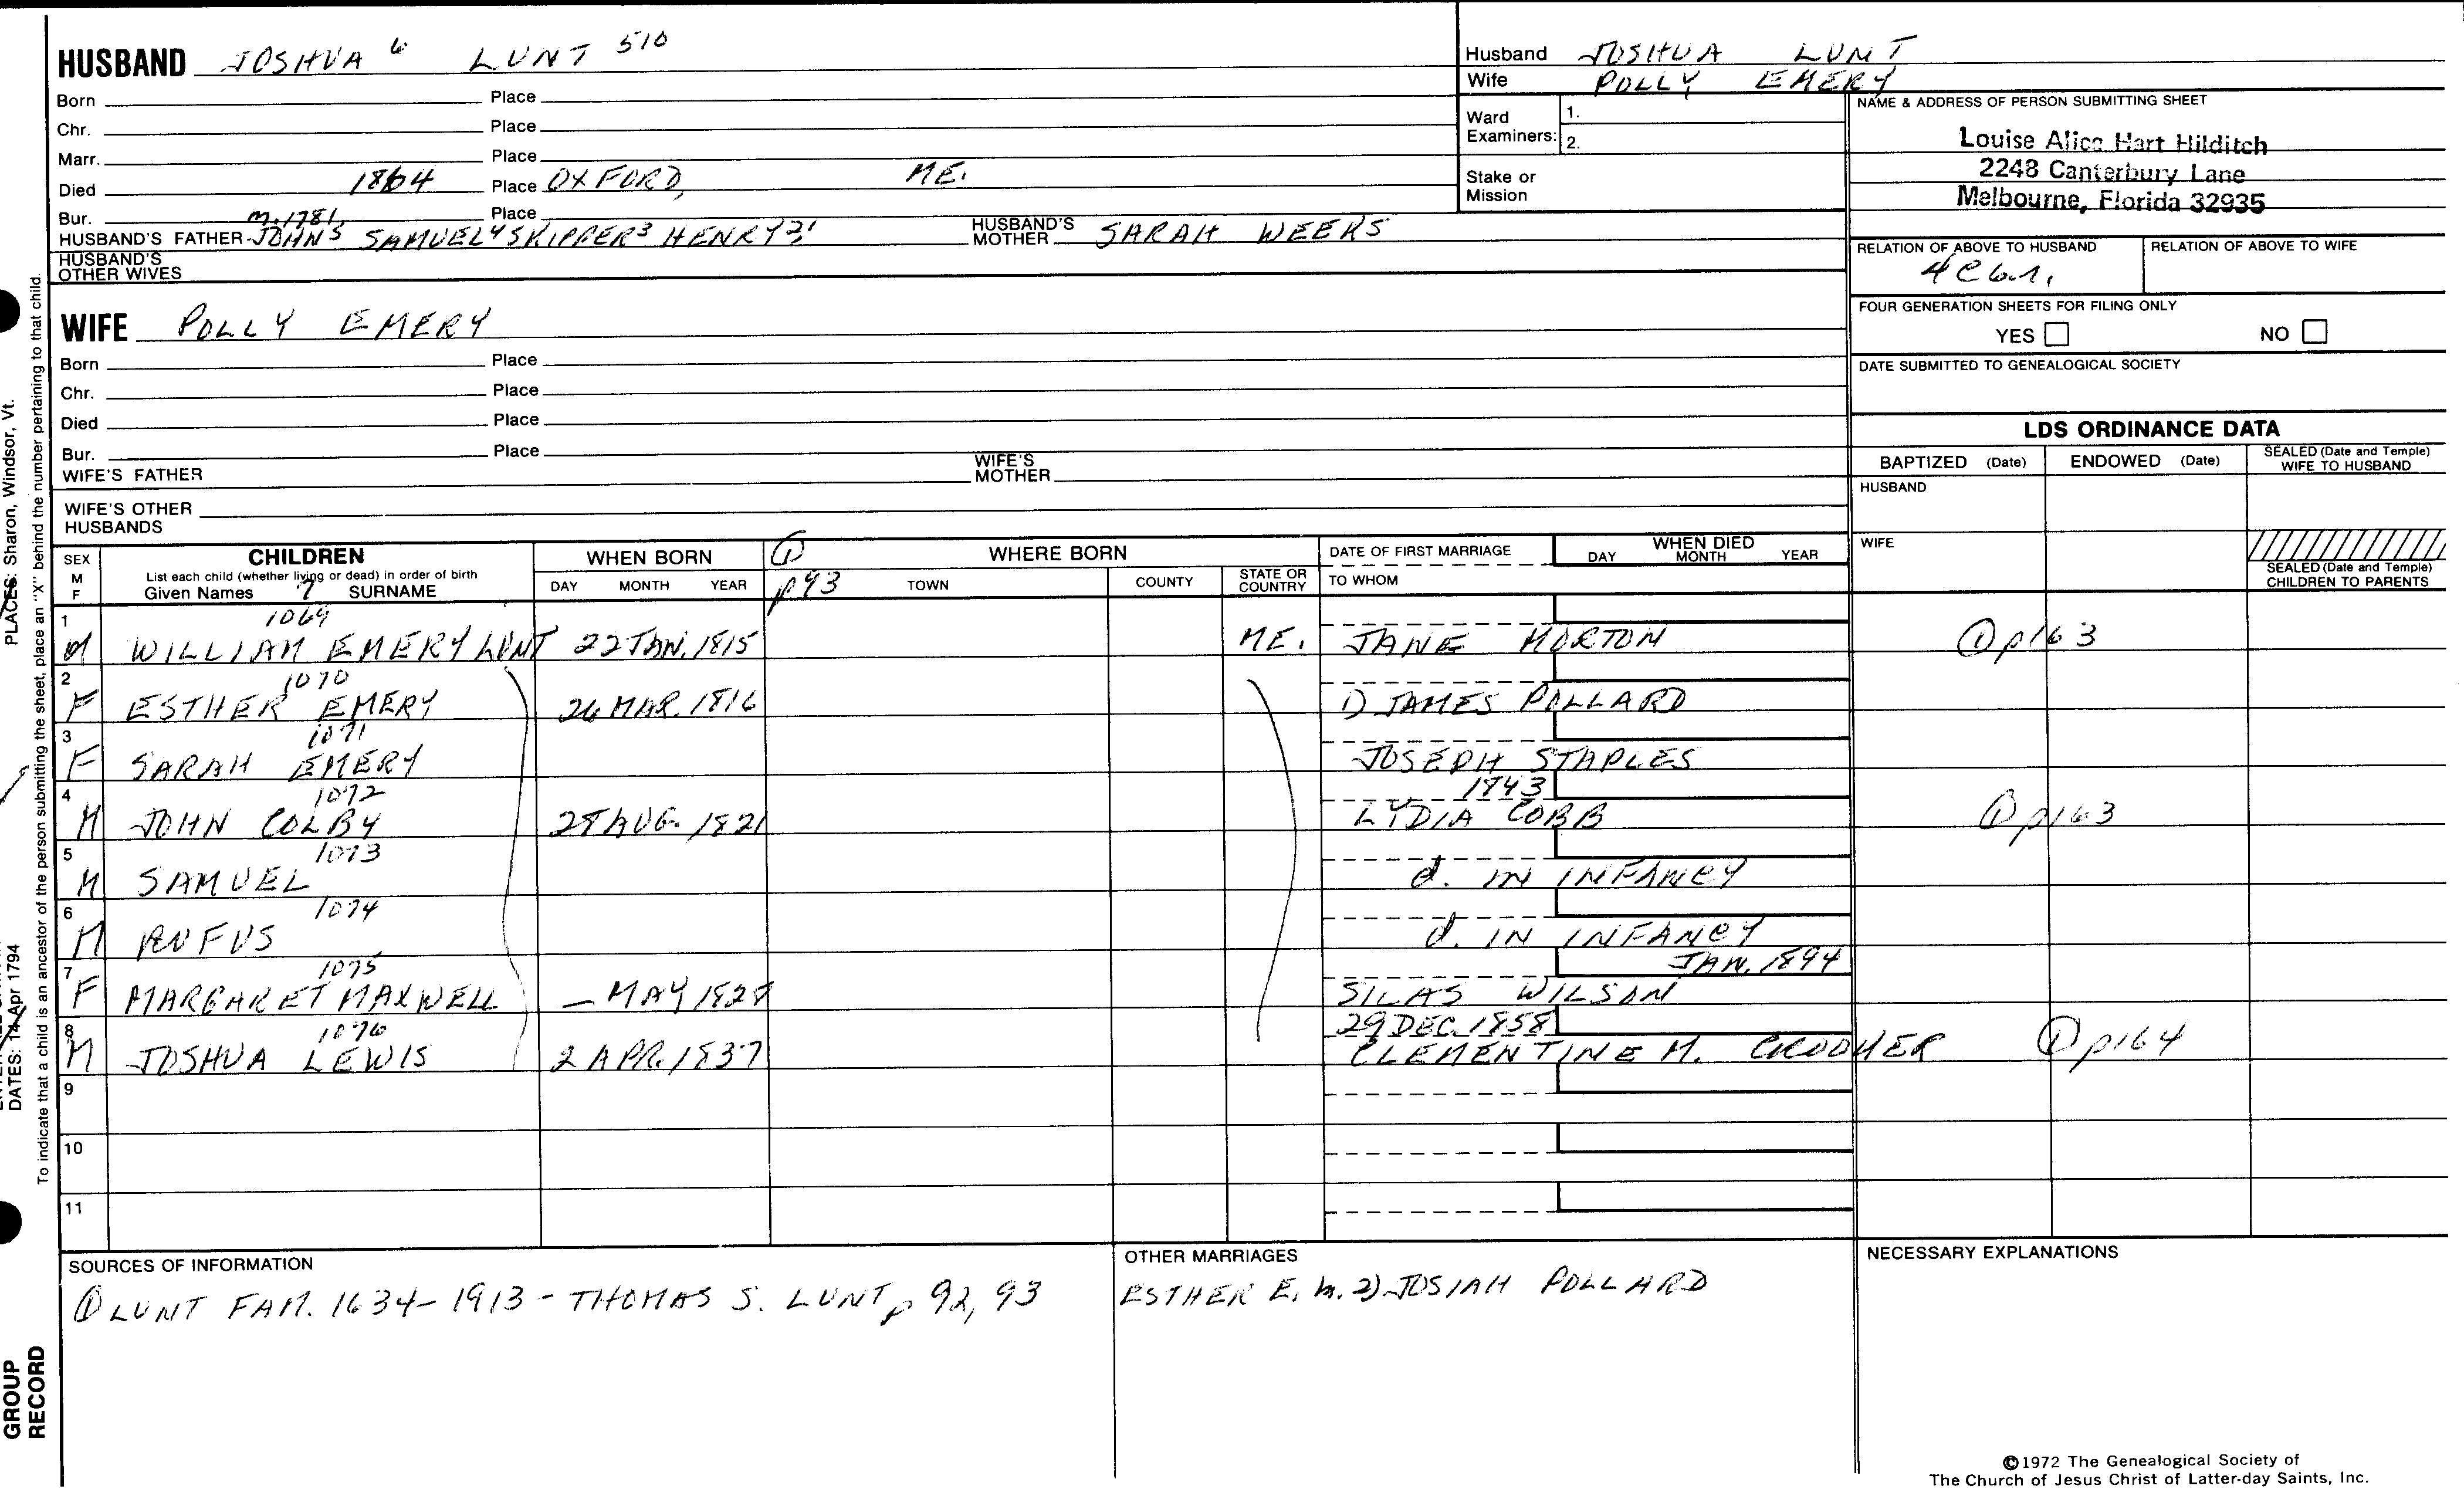 HUSBAND JOSHUA 6 LUNT 510
Born Place
Chr. Place
Marr. Place
Died 1864 Place OXFORD, ME.
Bur. Place
M. 1781
HUSBAND'S FATHER JOHN5 SAMUEL4 SKIPPER3 HENRY2,1 HUSBAND'S MOTHER SARAH WEEKS
HUSBAND'S OTHER WIVES
WIFE POLLY EMERY
Born Place
Chr. Place
Died Place
Bur. Place
WIFE'S FATHER WIFE'S MOTHER
WIFE'S OTHER HUSBANDS
Husband JOSHUA LUNT
Wife POLLY EMERY
Ward Examiners: 1.
2.
Stake or Mission
NAME & ADDRESS OF PERSON SUBMITTING SHEET
Louise Alice Hart Hilditch
2248 Canterbury Lane
Melbourne, Florida 32935
RELATION OF ABOVE TO HUSBAND RELATION OF ABOVE TO WIFE
4C6.r.
FOUR GENERATION SHEETS FOR FILING ONLY
YES NO
DATE SUBMITTED TO GENEALOGICAL SOCIETY
LDS ORDINANCE DATA
BAPTIZED (Date) ENDOWED (Date) SEALED (Date and Temple) WIFE TO HUSBAND
HUSBAND
WIFE
SEALED (Date and Temple) CHILDREN TO PARENTS
SEX M F CHILDREN WHEN BORN ① WHERE BORN DATE OF FIRST MARRIAGE WHEN DIED
List each child (whether living or dead) in order of birth
Given Names 7 SURNAME DAY MONTH YEAR p93 TOWN COUNTY STATE OR COUNTRY TO WHOM DAY MONTH YEAR
1069
1 M WILLIAM EMERY LUNT 22 JAN. 1815 ME. JANE MORTON ① p163
1070
2 F ESTHER EMERY 26 MAR. 1816 1) JAMES POLLARD
1071
3 F SARAH EMERY JOSEPH STAPLES
1072 1843
4 M JOHN COLBY 28 AUG. 1821 LYDIA COBB ① p163
1073
5 M SAMUEL d. IN INFANCY
1074
6 M RUFUS d. IN INFANCY
1075 JAN. 1894
7 F MARGARET MAXWELL — MAY 1828 SILAS WILSON
1076 29 DEC. 1858
8 M JOSHUA LEWIS 2 APR. 1837 CLEMENTINE M. CROOKER ① p164
9
10
11
SOURCES OF INFORMATION
① LUNT FAM. 1634-1913 - THOMAS S. LUNT p 92, 93
OTHER MARRIAGES
ESTHER E. m. 2) JOSIAH POLLARD
NECESSARY EXPLANATIONS
©1972 The Genealogical Society of
The Church of Jesus Christ of Latter-day Saints, Inc.
PLACES: Sharon, Windsor, Vt.
DATES: 14 Apr 1794
To indicate that a child is an ancestor of the person submitting the sheet, place an "X" behind the number pertaining to that child.
GROUP
RECORD